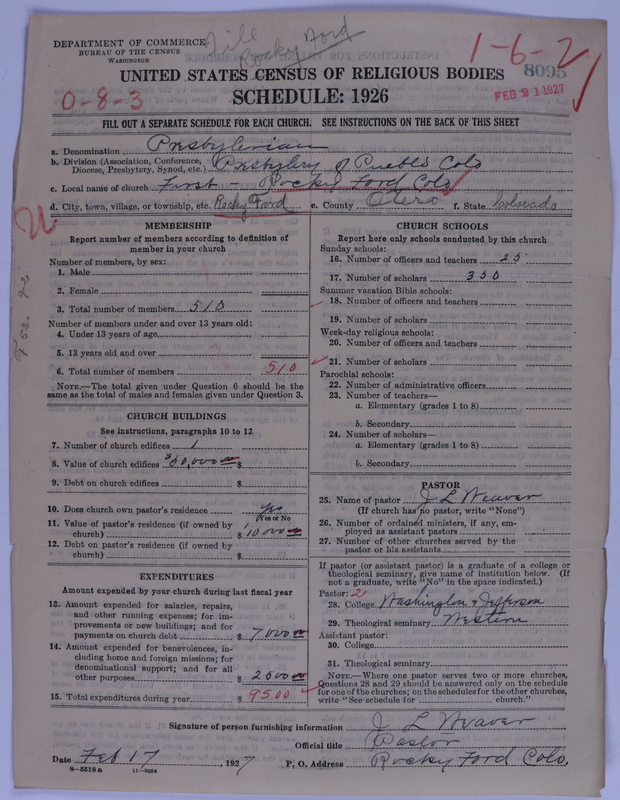 File
Rocky Ford
1-6-2
8095
FEB 21 1927
DEPARTMENT OF COMMERCE
BUREAU OF THE CENSUS
WASHINGTON
UNITED STATES CENSUS OF RELIGIOUS BODIES
SCHEDULE: 1926
0-8-3
FILL OUT A SEPARATE SCHEDULE FOR EACH CHURCH. SEE INSTRUCTIONS ON THE BACK OF THIS SHEET
a. Denomination Presbyterian
b. Division (Association, Conference, Diocese, Presbytery, Synod, etc.) Presbytery of Pueblo Colo
c. Local name of church First - Rocky Ford Colo
d. City, town, village, or township, etc. Rocky Ford e. County Otero f. State Colorado
MEMBERSHIP
Report number of members according to definition of
member in your church
Number of members, by sex:
1. Male
2. Female
3. Total number of members 510
Number of members under and over 13 years old:
4. Under 13 years of age
5. 13 years old and over
6. Total number of members 510
NOTE.—The total given under Question 6 should be the
same as the total of males and females given under Question 3.
CHURCH BUILDINGS
See instructions, paragraphs 10 to 12
7. Number of church edifices 1
8. Value of church edifices $50,000.00 $
9. Debt on church edifices $
10. Does church own pastor's residence yes
(Yes or No)
11. Value of pastor's residence (if owned by
church) $ 10000.00
12. Debt on pastor's residence (if owned by
church) $
EXPENDITURES
Amount expended by your church during last fiscal year
13. Amount expended for salaries, repairs,
and other running expenses; for im-
provements or new buildings; and for
payments on church debt $ 7000.00
14. Amount expended for benevolences, in-
cluding home and foreign missions; for
denominational support; and for all
other purposes $ 2500.00
15. Total expenditures during year $ 9500
CHURCH SCHOOLS
Report here only schools conducted by this church
Sunday schools:
16. Number of officers and teachers 25
17. Number of scholars 350
Summer vacation Bible schools:
18. Number of officers and teachers
19. Number of scholars
Week-day religious schools:
20. Number of officers and teachers
21. Number of scholars
Parochial schools:
22. Number of administrative officers
23. Number of teachers—
a. Elementary (grades 1 to 8)
b. Secondary
24. Number of scholars—
a. Elementary (grades 1 to 8)
b. Secondary
PASTOR
25. Name of pastor J L Weaver
(If church has no pastor, write "None")
26. Number of ordained ministers, if any, em-
ployed as assistant pastors
27. Number of other churches served by the
pastor or his assistants
If pastor (or assistant pastor) is a graduate of a college or
theological seminary, give name of institution below. (If
not a graduate, write "No" in the space indicated.)
Pastor: 2
28. College Washington & Jefferson
29. Theological seminary Western
Assistant pastor:
30. College
31. Theological seminary
NOTE.—Where one pastor serves two or more churches,
Questions 28 and 29 should be answered only on the schedule
for one of the churches; on the schedules for the other churches,
write "See schedule for church."
Signature of person furnishing information J L Weaver
Official title Pastor
Date Feb 17, 1927 P. O. Address Rocky Ford Colo.
8-5518a 11-9264